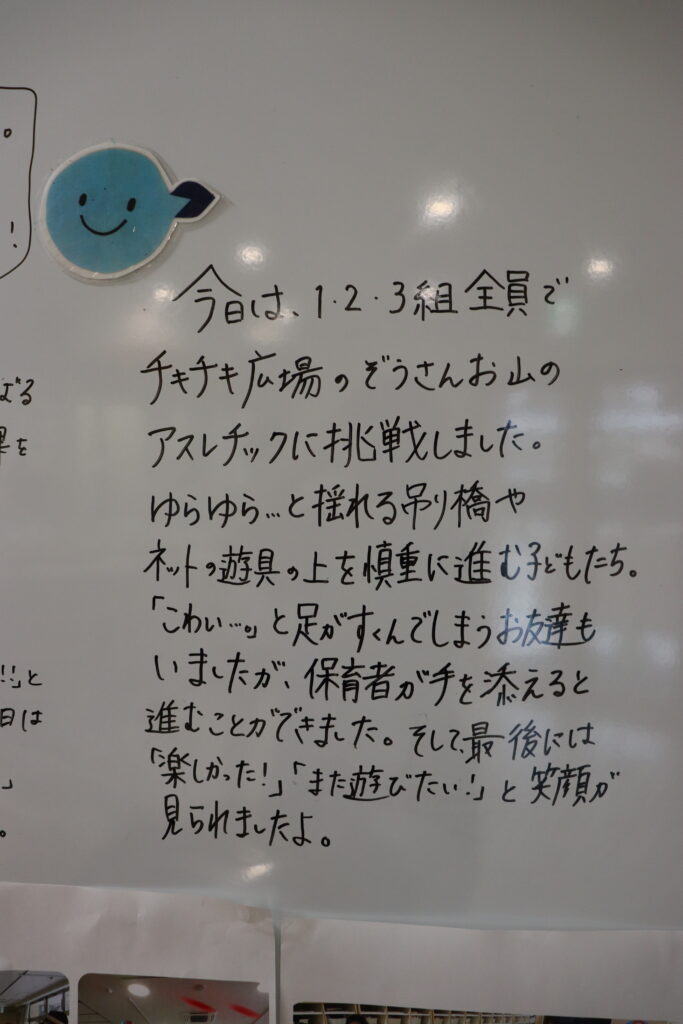 今日は、1・2・3組全員で
チキチキ広場のぞうさんお山の
アスレチックに挑戦しました。
ゆらゆら…と揺れる吊り橋や
ネットの遊具の上を慎重に進む子どもたち。
「こわい…。」と足がすくんでしまうお友達も
いましたが、保育者が手を添えると
進むことができました。そして、最後には
「楽しかった!」「また遊びたい!」と笑顔が
見られましたよ。
。
!
ばる
を
!!」と
日は
」
。